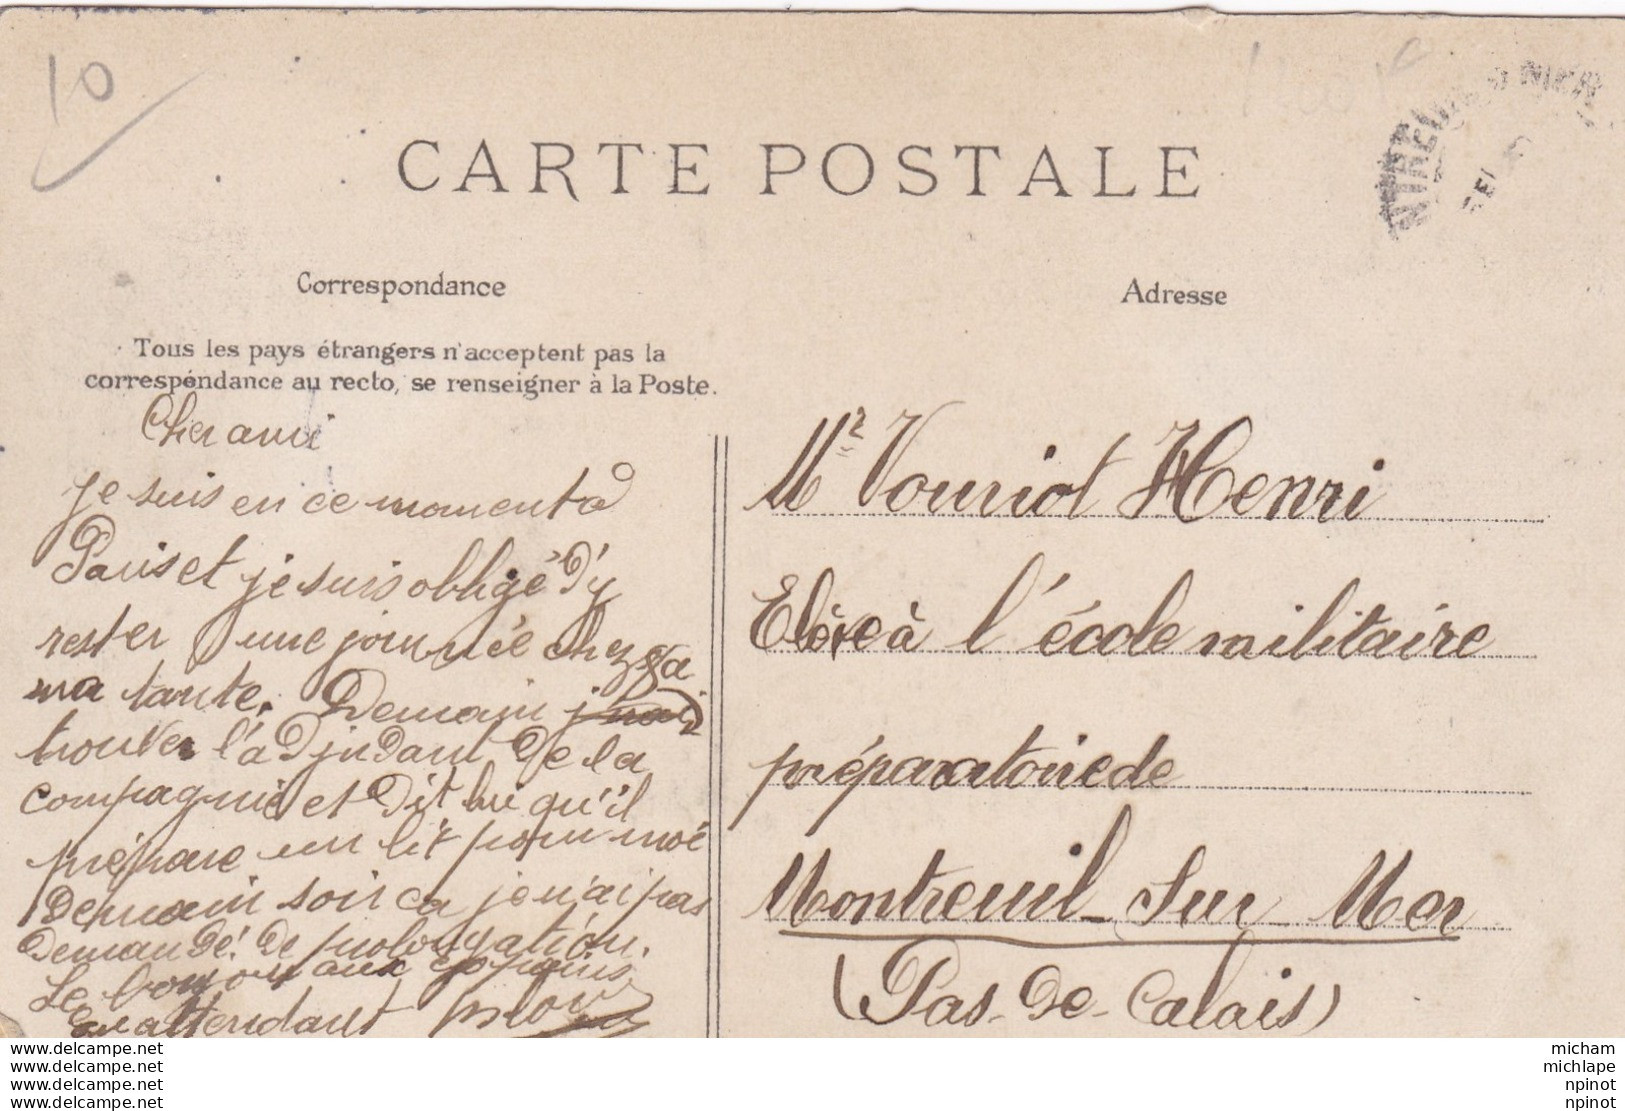 10
CARTE POSTALE
Correspondance
Tous les pays étrangers n'acceptent pas la
correspondance au recto, se renseigner à la Poste.
Cher ami
je suis en ce moment à
Paris et je suis obligé d'y
rester une journée chez
ma tante. Demain
trouver l'adjudant de la
compagnie et dit lui qu'il
prépare un lit pour moi
demain soir ca je n'ai pas
demandé de prolongation.
Le bonjour aux copains
En attendant
Adresse
Mr Vouriot Henri
Elève à l'école militaire
préparatoire de
Montreuil-Sur-Mer
(Pas-de-Calais)
www.delcampe.net
www.delcampe.net
www.delcampe.net
www.delcampe.net
micham
michlape
npinot
npinot